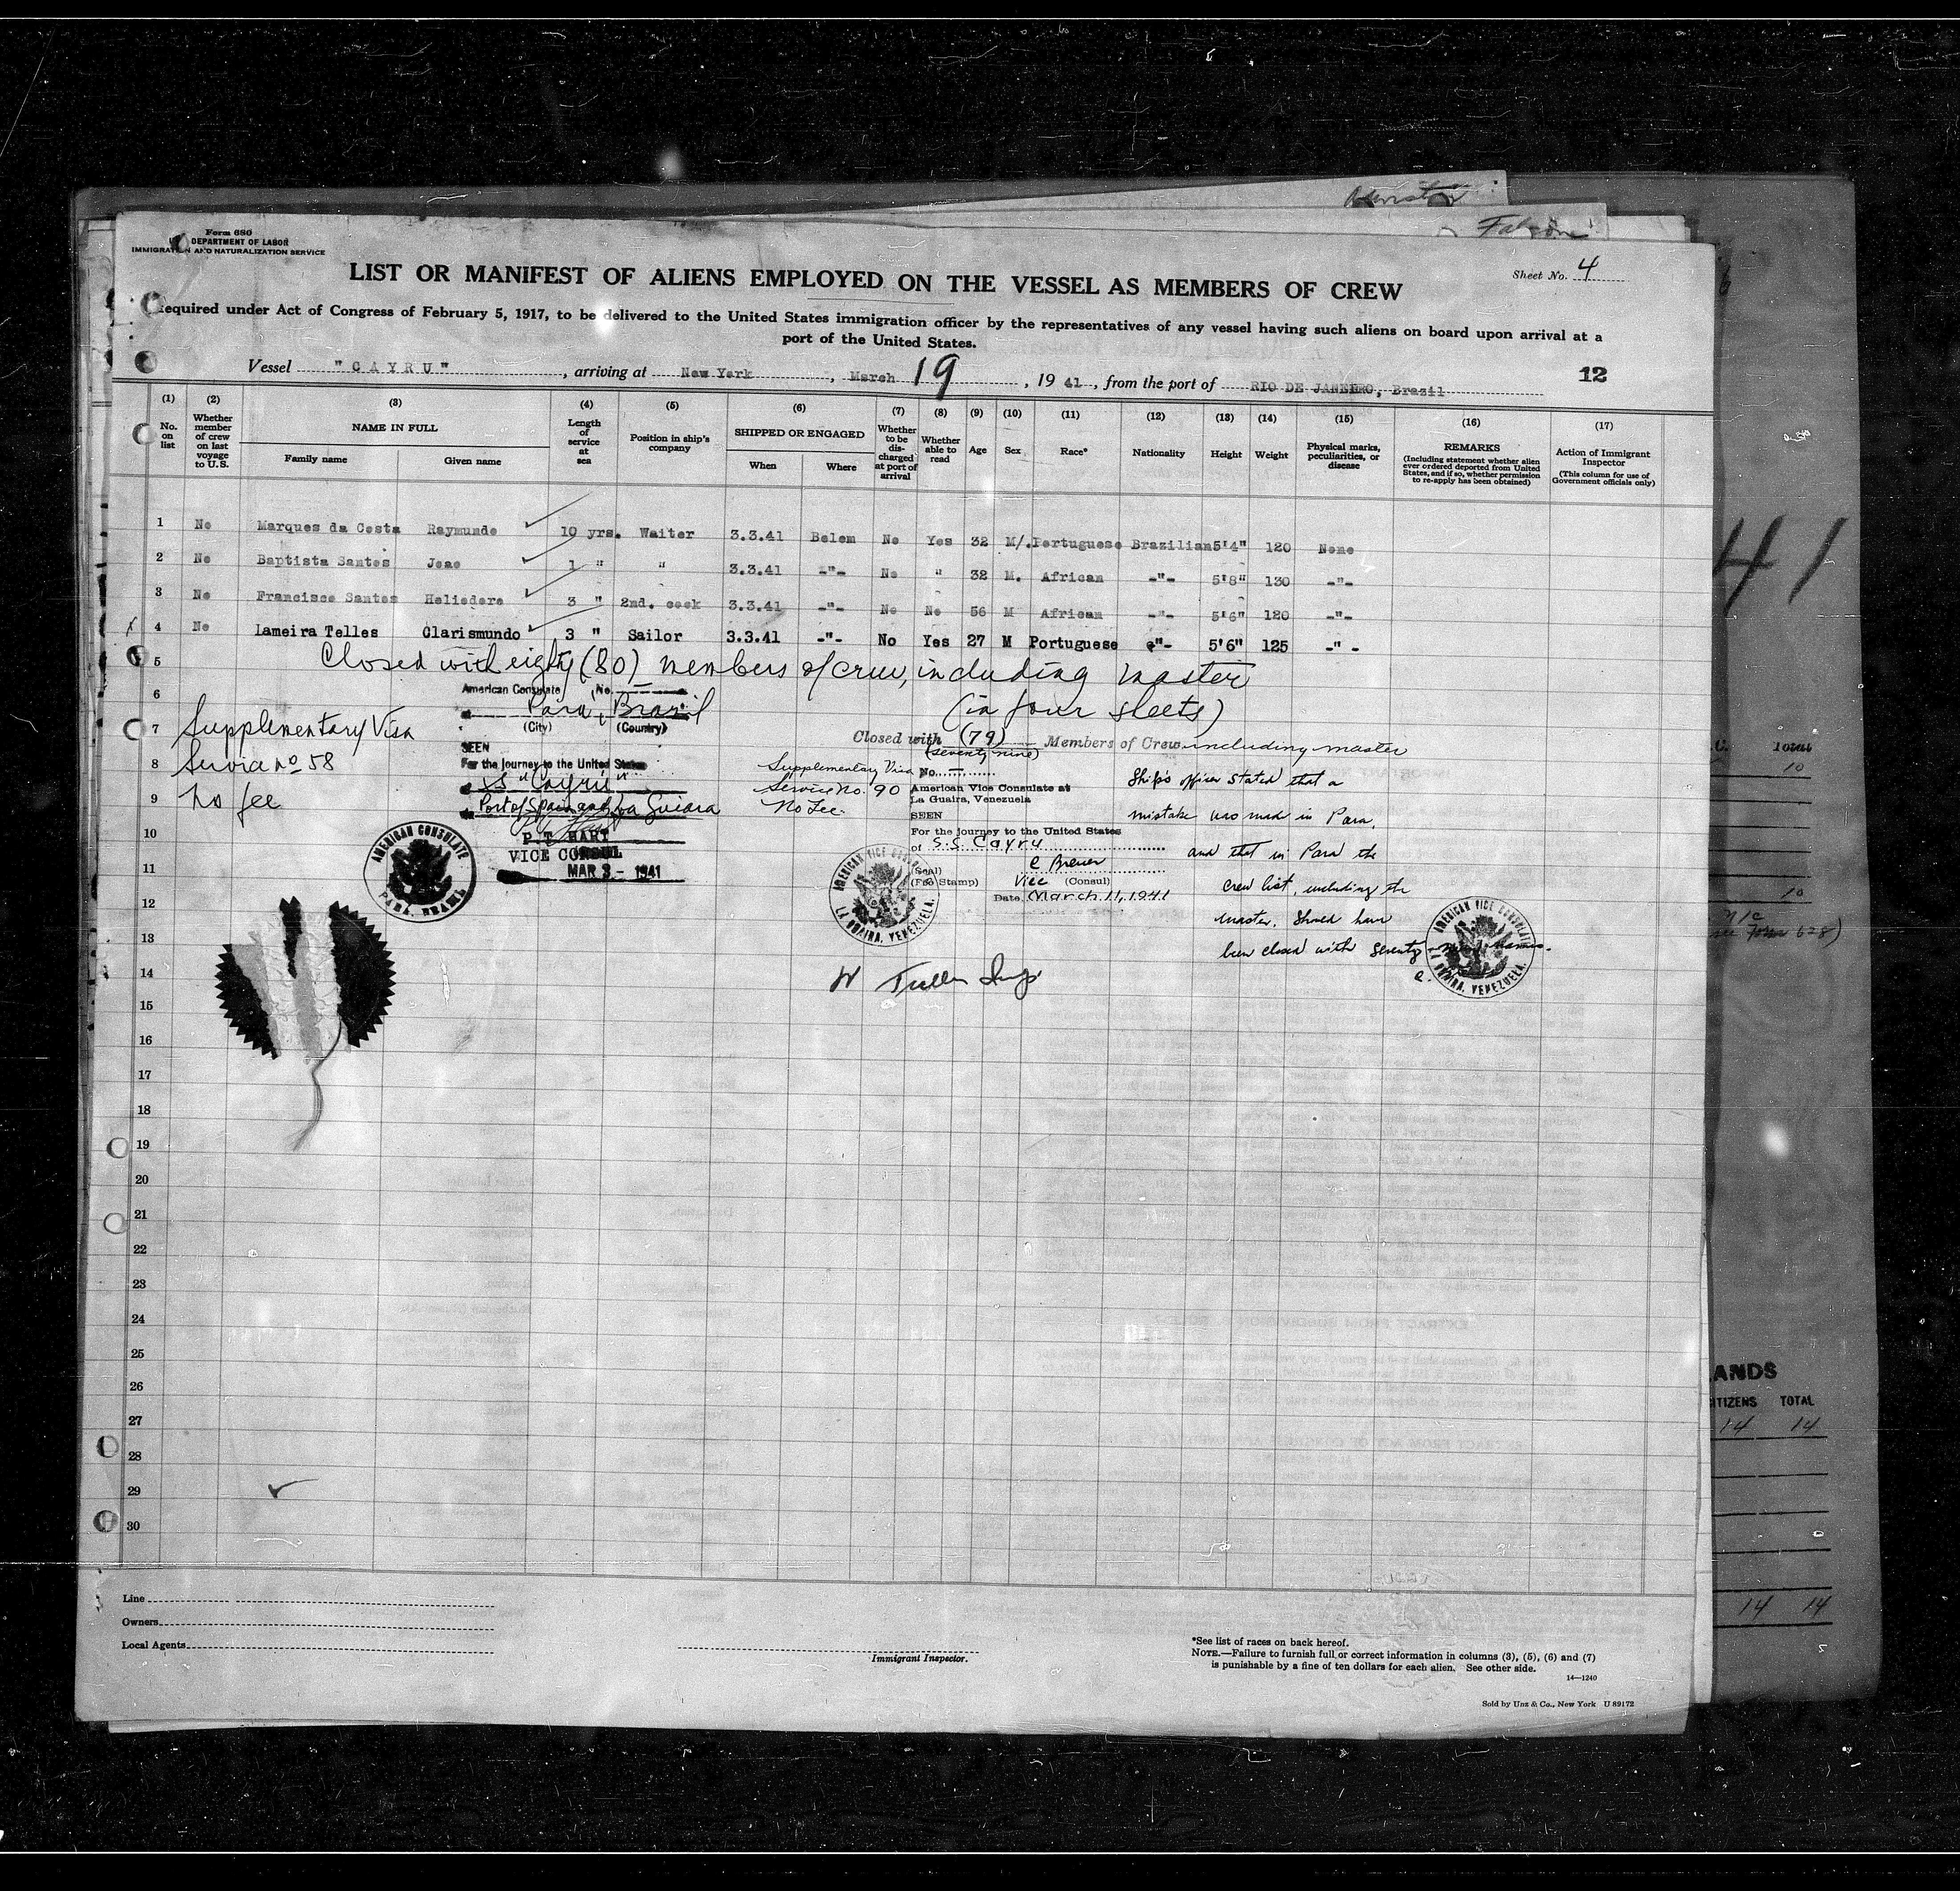 Form 680
DEPARTMENT OF LABOR
IMMIGRATION AND NATURALIZATION SERVICE
Falcon
Sheet No. 4
LIST OR MANIFEST OF ALIENS EMPLOYED ON THE VESSEL AS MEMBERS OF CREW
Required under Act of Congress of February 5, 1917, to be delivered to the United States immigration officer by the representatives of any vessel having such aliens on board upon arrival at a
port of the United States.
Vessel "CAYRU", arriving at New York, March 19, 1941, from the port of RIO DE JANEIRO, Brazil
12
(1) No. on list
(2) Whether member of crew on last voyage to U.S.
(3) NAME IN FULL
Family name Given name
(4) Length of service at sea
(5) Position in ship's company
(6) SHIPPED OR ENGAGED
When Where
(7) Whether to be discharged at port of arrival
(8) Whether able to read
(9) Age
(10) Sex
(11) Race*
(12) Nationality
(13) Height
(14) Weight
(15) Physical marks, peculiarities, or disease
(16) REMARKS
(Including statement whether alien ever ordered deported from United States, and if so, whether permission to re-apply has been obtained)
(17) Action of Immigrant Inspector
(This column for use of Government officials only)
1 No Marques da Costa Raymundo 10 yrs. Waiter 3.3.41 Belem No Yes 32 M/. Portuguese Brazilian 5'4" 120 None
2 No Baptista Santos Joao 1 " " 3.3.41 -"- No " 32 M. African -"- 5'8" 130 -"-
3 No Francisco Santos Heliodoro 3 " 2nd. cook 3.3.41 -"- No No 56 M African -"- 5'6" 120 -"-
4 No Lameira Telles Clarismundo 3 " Sailor 3.3.41 -"- No Yes 27 M Portuguese -"- 5'6" 125 -"-
5
Closed with eighty (80) members of crew, including master
(in four sheets)
6
7
8
9
10
11
12
13
14
15
16
17
18
19
20
21
22
23
24
25
26
27
28
29
30
Supplementary Visa
Service No 58
No fee
American Consulate No. —
at Para, Brazil
(City) (Country)
SEEN
For the journey to the United States
SS "Cayru"
Port of Spain and La Guiara
P. T. HART
VICE CONSUL
MAR 3 - 1941
AMERICAN CONSULATE
PARA, BRAZIL
Closed with (79) Members of Crew including master
(seventy nine)
Supplementary Visa No. —
Service No. 90
No Fee.
American Vice Consulate at
La Guaira, Venezuela
SEEN
For the journey to the United States
of S.S. Cayru
C Breuer
(Seal)
(Fee Stamp)
Vice (Consul)
Date March 11, 1941
AMERICAN VICE CONSULATE
LA GUAIRA, VENEZUELA.
Ship's officer stated that a
mistake was made in Para,
and that in Para the
crew list, including the
master, should have
been closed with seventy
AMERICAN VICE CONSULATE
LA GUAIRA, VENEZUELA.
41
Total
10
10
ANDS
CITIZENS TOTAL
14 14
14 14
Line
Owners
Local Agents
Immigrant Inspector.
*See list of races on back hereof.
NOTE.—Failure to furnish full or correct information in columns (3), (5), (6) and (7)
is punishable by a fine of ten dollars for each alien. See other side.
14—1240
Sold by Unz & Co., New York U 89172